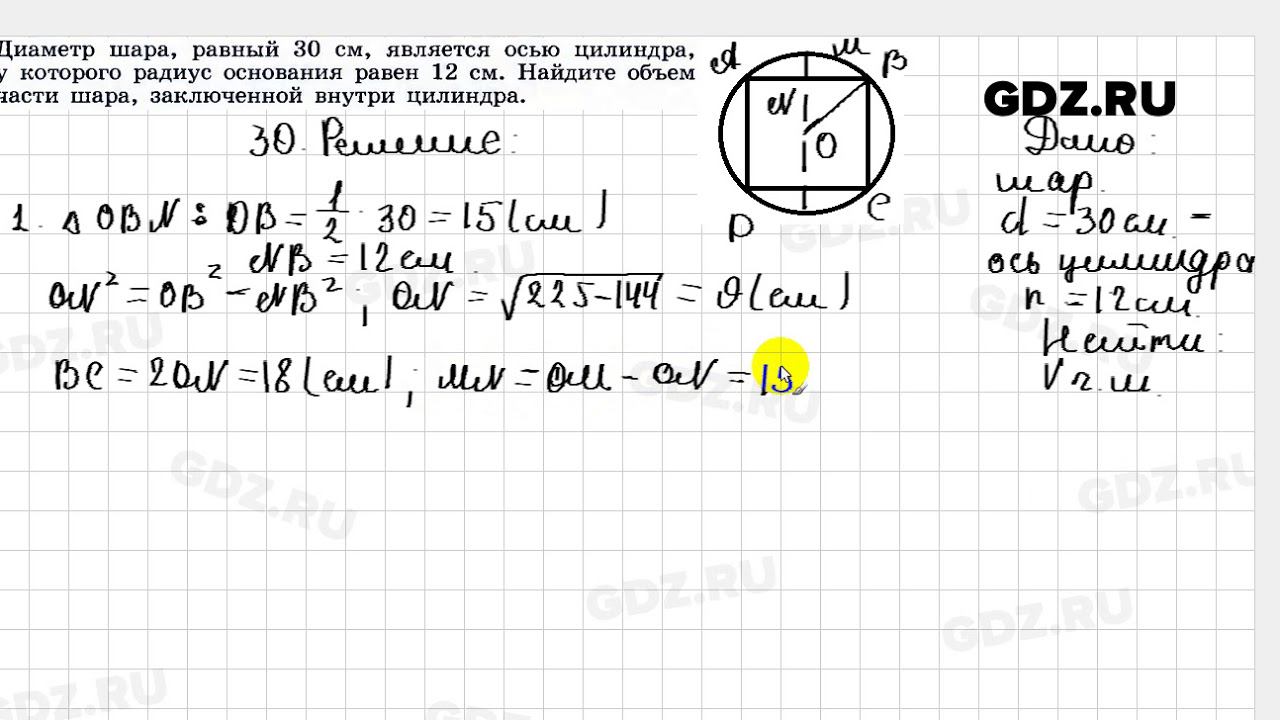 Диаметр шара, равный 30 см, является осью цилиндра,
у которого радиус основания равен 12 см. Найдите объем
части шара, заключенной внутри цилиндра.
A M B
N
O
D C
GDZ.RU
30. Решение:
Дано:
шар.
d = 30 см –
ось цилиндра
r = 12 см.
Найти:
V ч. ш.
1. Δ OBN : OB = 1/2 · 30 = 15 (см)
NB = 12 см
ON² = OB² – NB² ; ON = √225–144 = 9 (см)
BC = 2ON = 18 (см) ; MN = OM – ON = 15
GDZ.RU
GDZ.RU
GDZ.RU
GDZ.RU
GDZ.RU
GDZ.RU
GDZ.RU
GDZ.RU
GDZ.RU
GDZ.RU
GDZ.RU